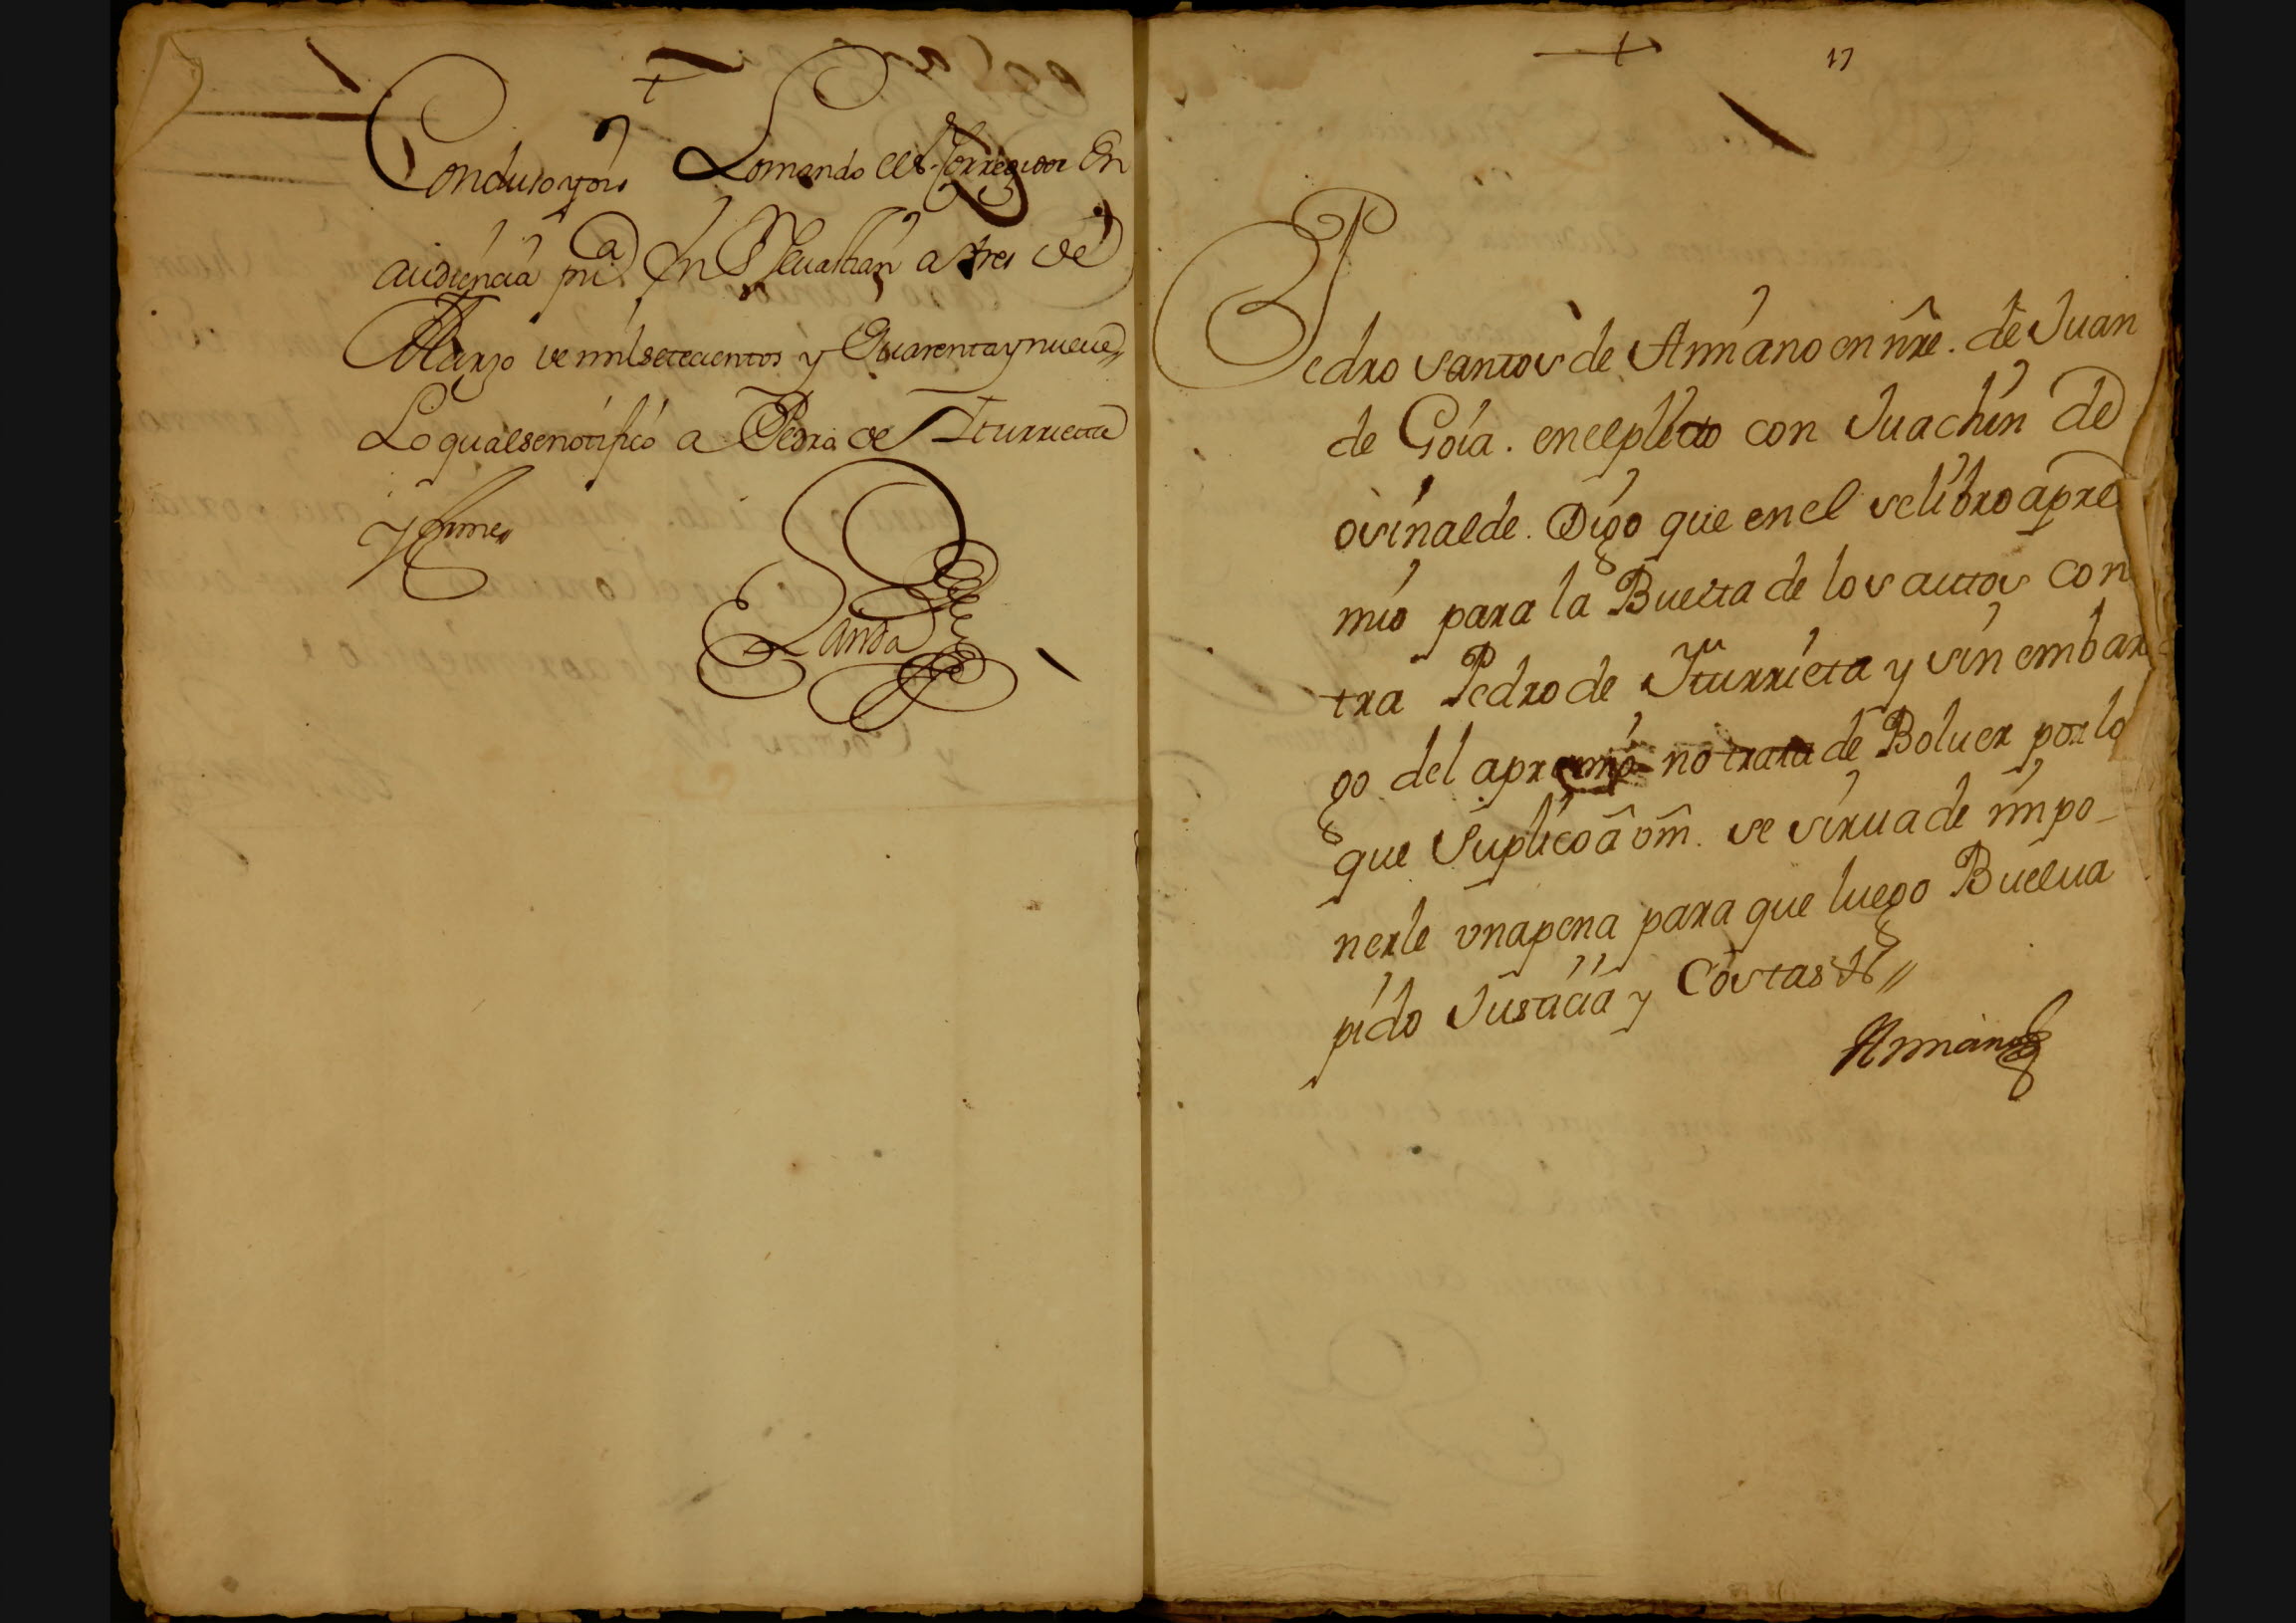 +
Concluso y autos Lo mando el Sr. Corregidor En
audiencia pu.ca En S. Seuastian a tres de
Marzo de mil setecientos y Quarenta y nueue
Lo qual se notificó a Pedro de Iturrieta
y firme
Landa
+ 17
Pedro Santos de Amiano en nre. de Juan
de Goia. en el pleito con Juachin de
osinalde. Digo que en el se libro apre
mio para la Buelta de los autos con
tra Pedro de Yturrieta y sin embar
go del apremio no trata de Boluer por lo
que Suplico â vm. se sirua de impo-
nerle vna pena para que luego Buelua
pido Justicia y Costas &
Amiano